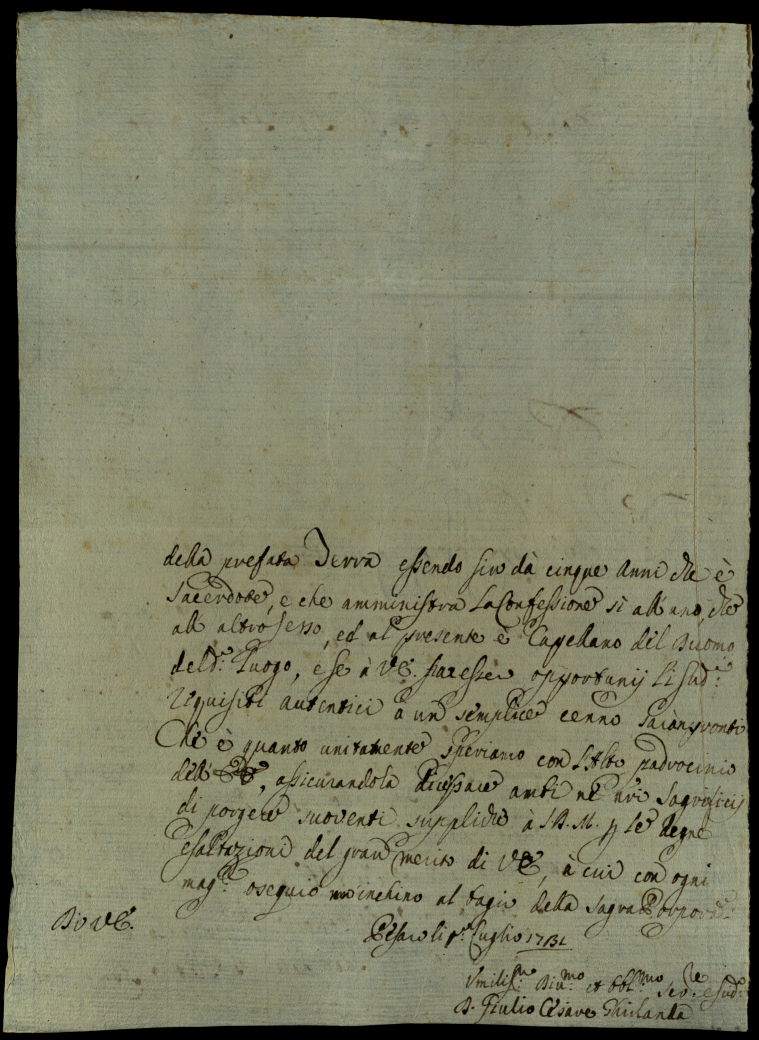 della prefata Terra essendo sin dà cinque Anni che è
Sacerdote, e che amministra la Confessione sì all' uno, che
all altro sesso, ed al presente è Capellano del Duomo
del d.º Luogo, e se à VE. opportunij li sud.ⁱ
requisiti autentici a un semplice cenno pronti
Che è quanto unitamente speriamo con l'Alto padrocinio
dell' assicurandola ambi ne nri Sagrificij
di porgere supplicħe à S.D.M. p le degne
esaltazioni del gran merito di VE, à cui con ogni
mag.ʳ osequio inchino al bagio della Sagra Porpora
Di VE.
Pesaro li p.º Luglio 1731
Umiliss.º Div.ᵐᵒ et Obl.ᵐᵒ Ser.ʳᵉ e Sud.º
D. Giulio Cesare Ghirlanda